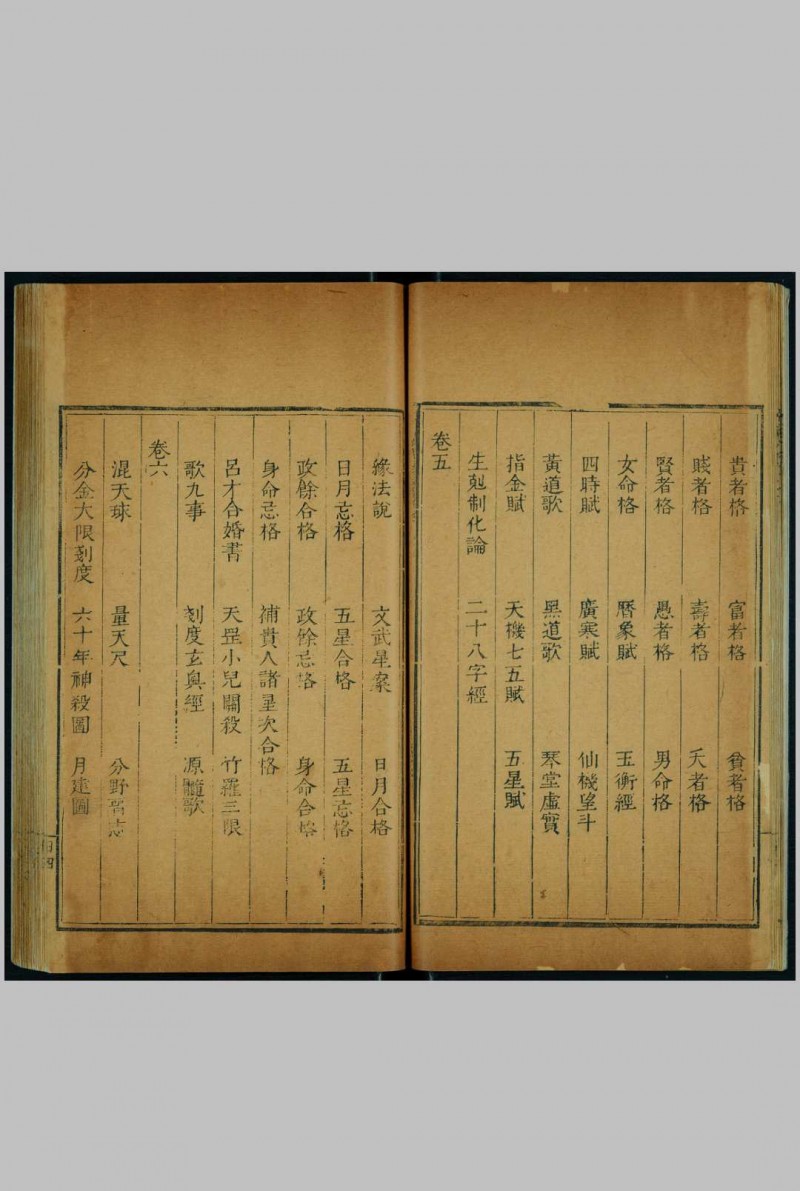 貴者格　富者格　貧者格
賎者格　壽者格　夭者格
賢者格　愚者格　男命格
女命格　曆象賦　玉衡經
四時賦　廣寒賦　仙機望斗
黃道歌　黑道歌　琴堂虛實
指金賦　天機七五賦　五星賦
生剋制化論　二十八字經
卷五
緣法說　文武星案　日月合格
日月忘格　五星合格　五星忘格
政餘合格　政餘忘格　身命合格
身命忌格　補貴人諸星次合格
呂才合婚書　天罡小兒關殺　竹羅三限
歌九事　刻度玄奧經　源髓歌
卷六
混天球　量天尺　分野
分金大限刻度　六十年神殺圖　月建圖